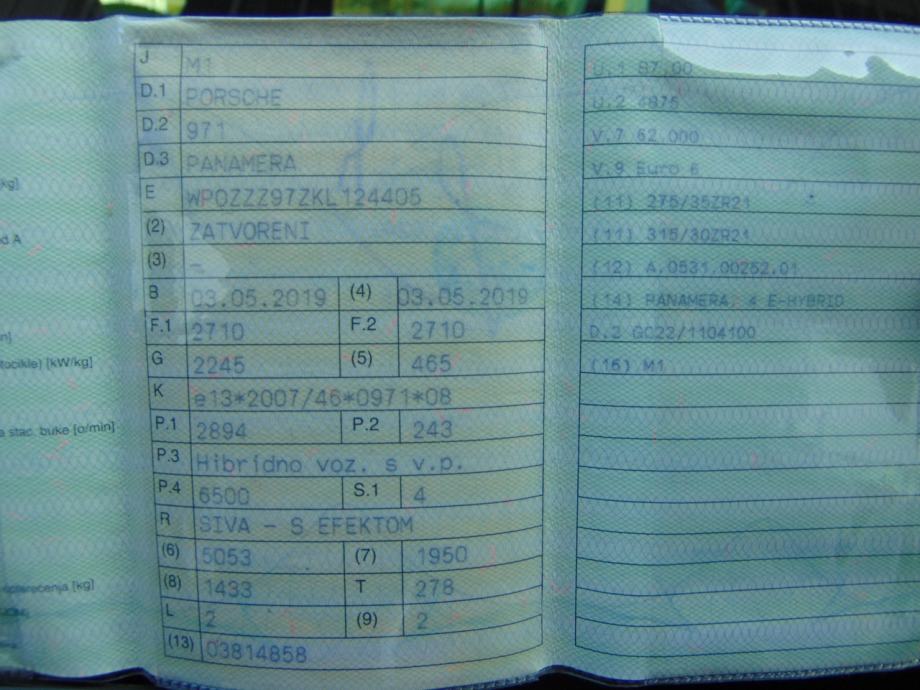 kg]
d A
n]
tocikle) [kW/kg]
e stac. buke [o/min]
opterećenja [kg]
J M1
D.1 PORSCHE
D.2 971
D.3 PANAMERA
E WP0ZZZ97ZKL124405
(2) ZATVORENI
(3) –
B 03.05.2019 (4) 03.05.2019
F.1 2710 F.2 2710
G 2245 (5) 465
K e13*2007/46*0971*08
P.1 2894 P.2 243
P.3 Hibridno voz. s v.p.
P.4 6500 S.1 4
R SIVA - S EFEKTOM
(6) 5053 (7) 1950
(8) 1433 T 278
L 2 (9) 2
(13) 03814858
U.1 87.00
U.2 4875
V.7 62.000
V.9 Euro 6
(11) 275/35ZR21
(11) 315/30ZR21
(12) A.0531.00252.01
(14) PANAMERA; 4 E-HYBRID
D.2 GC22/1104100
(16) M1